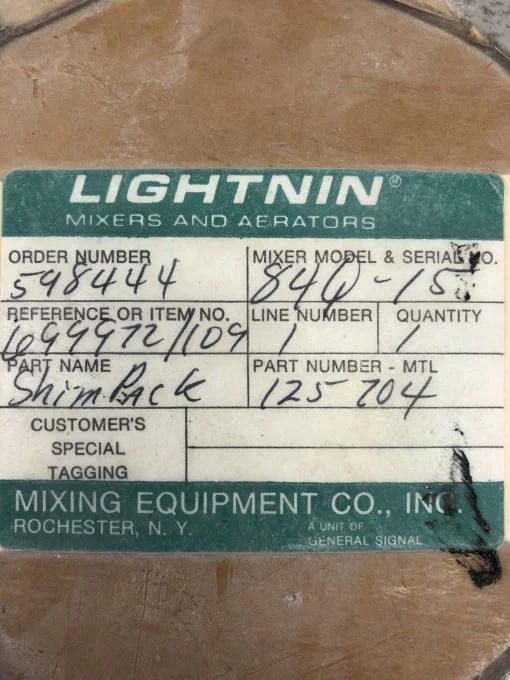 LIGHTNIN®
MIXERS AND AERATORS
ORDER NUMBER
598444
MIXER MODEL & SERIAL NO.
84Q-15
REFERENCE OR ITEM NO.
699972/109
LINE NUMBER
1
QUANTITY
1
PART NAME
Shim Pack
PART NUMBER - MTL
125 704
CUSTOMER'S
SPECIAL
TAGGING
MIXING EQUIPMENT CO., INC.
ROCHESTER, N. Y.
A UNIT OF
GENERAL SIGNAL